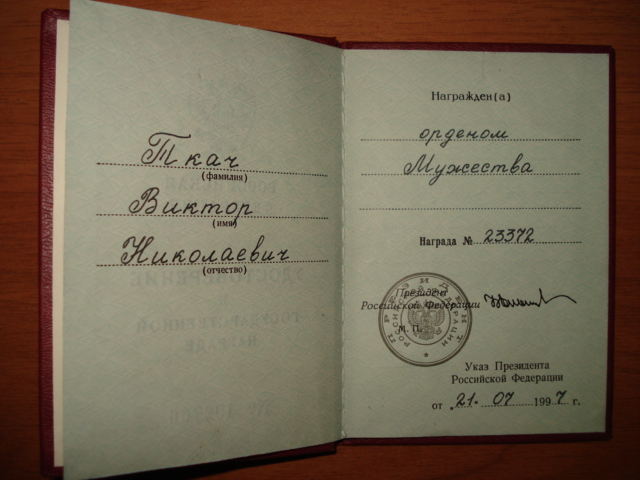 Ткач
(фамилия)
Виктор
(имя)
Николаевич
(отчество)
Награжден(а)
орденом
Мужества
Награда № 23372
Президент
Российской Федерации
М. П.
ПРЕЗИДЕНТ
РОССИЙСКОЙ ФЕДЕРАЦИИ
Указ Президента
Российской Федерации
от 21. 07 1997 г.